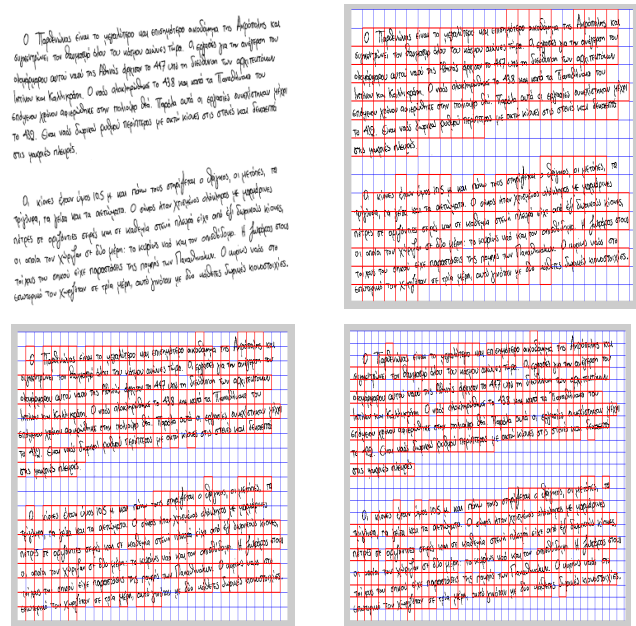 Ο Παρθενώνας είναι το μεγαλύτερο και επισημότερο οικοδόμημα της Ακρόπολης και
συγκεντρώνει τον θαυμασμό όλου του κόσμου αιώνες τώρα. Οι εργασίες για την ανέγερση του
ολομάρμαρου αυτού ναού της Αθηνάς άρχισαν το 447 υπό τη διεύθυνση των αρχιτεκτόνων
Ικτίνου και Καλλικράτη. Ο ναός ολοκληρώθηκε το 438 και κατά τα Παναθήναια του
επόμενου χρόνου αφιερώθηκε στην πολιούχο θεά. Παρόλα αυτά οι εργασίες συνεχίστηκαν μέχρι
το 432. Είναι ναός δωρικού ρυθμού περίπτερος με οκτώ κίονες στις στενές και δεκαεπτά
στις μακριές πλευρές.
Οι κίονες έχουν ύψος 10,5 μ. και πάνω τους στηρίζεται ο θριγκός, οι μετόπες, τα
τρίγλυφα, τα γείσα και τα αετώματα. Ο σηκός ήταν χτισμένος ολόκληρος με μαρμάρινες
πέτρες σε οριζόντιες σειρές και σε καθεμία στενή πλευρά είχε από έξι δωρικούς κίονες,
οι οποίοι τον χώριζαν σε δύο μέρη: το κυρίως ναό και τον οπισθόδομο. Η ζωφόρος στους
τοίχους του σηκού είχε παραστάσεις της πομπής των Παναθηναίων. Ο κυρίως ναός στο
εσωτερικό του χωριζόταν σε τρία μέρη, αυτό γινόταν με δύο κάθετες δωρικές κιονοστοιχίες.